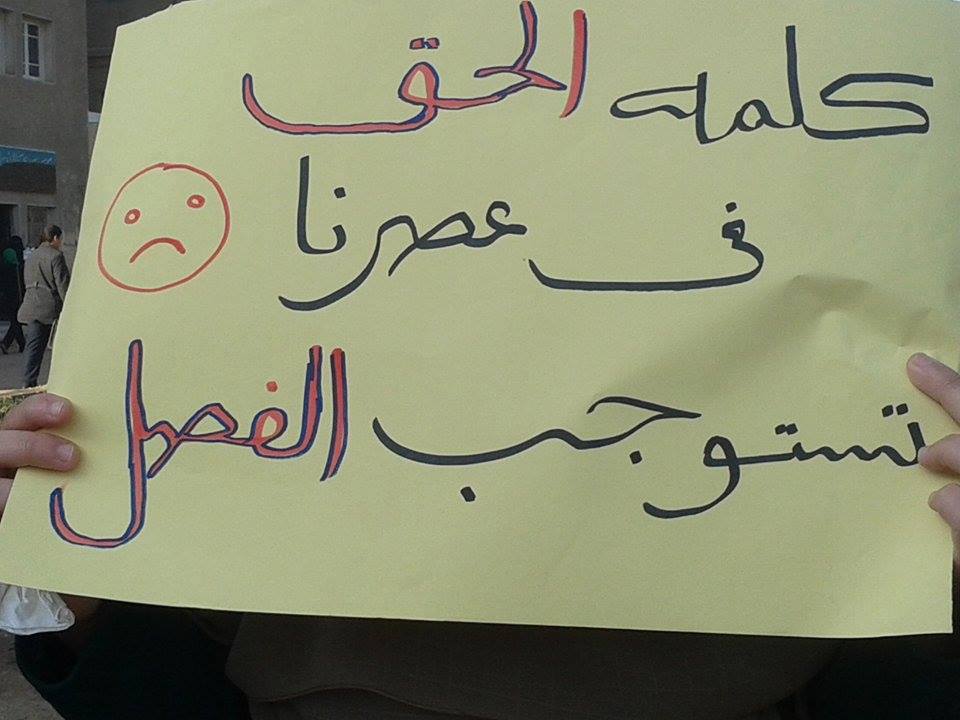 كلمه الحق
فى عصرنا
تستوجب الفصل